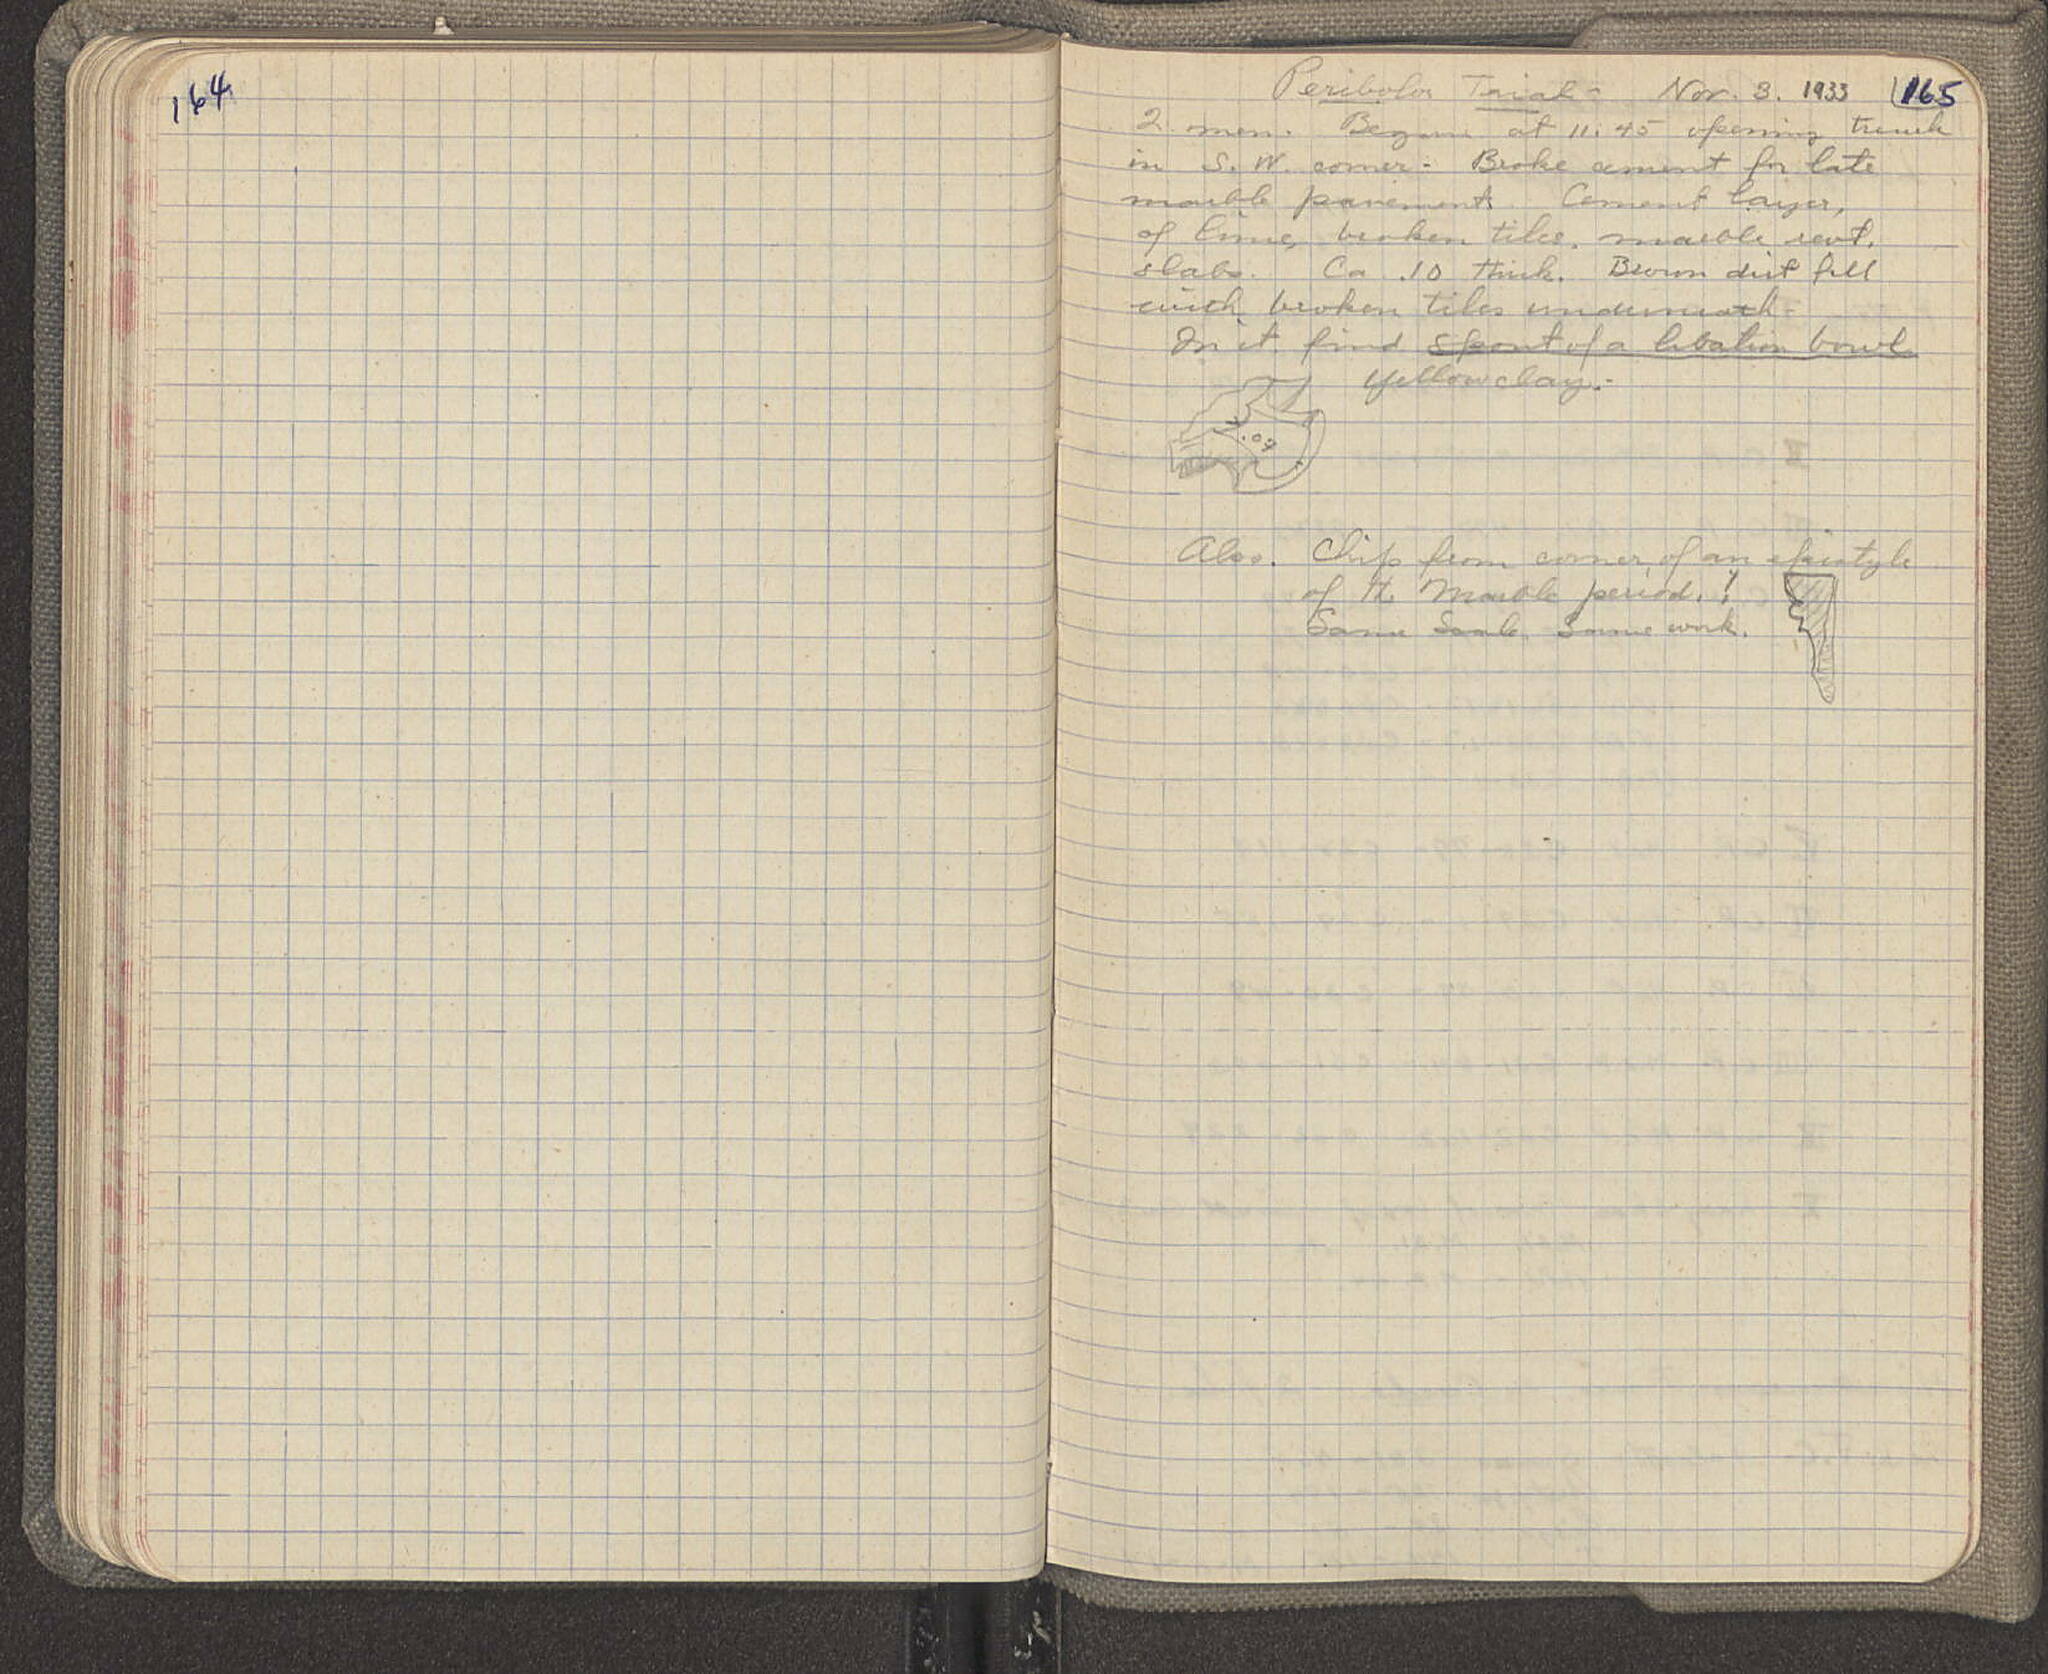 164
Peribolos Trial - Nov. 3. 1933 165
2 men. Began at 11:45 opening trench
in S.W. corner - Broke cement for late
marble pavement. Cement layer,
of lime, broken tiles, marble revt.
slabs. Ca .10 thick. Brown dirt fill
with broken tiles underneath -
In it find spout of a libation bowl
yellow clay. -
.09
Also. Chip from corner of an epistyle
of the Marble period. !
Same Scale. Same work.